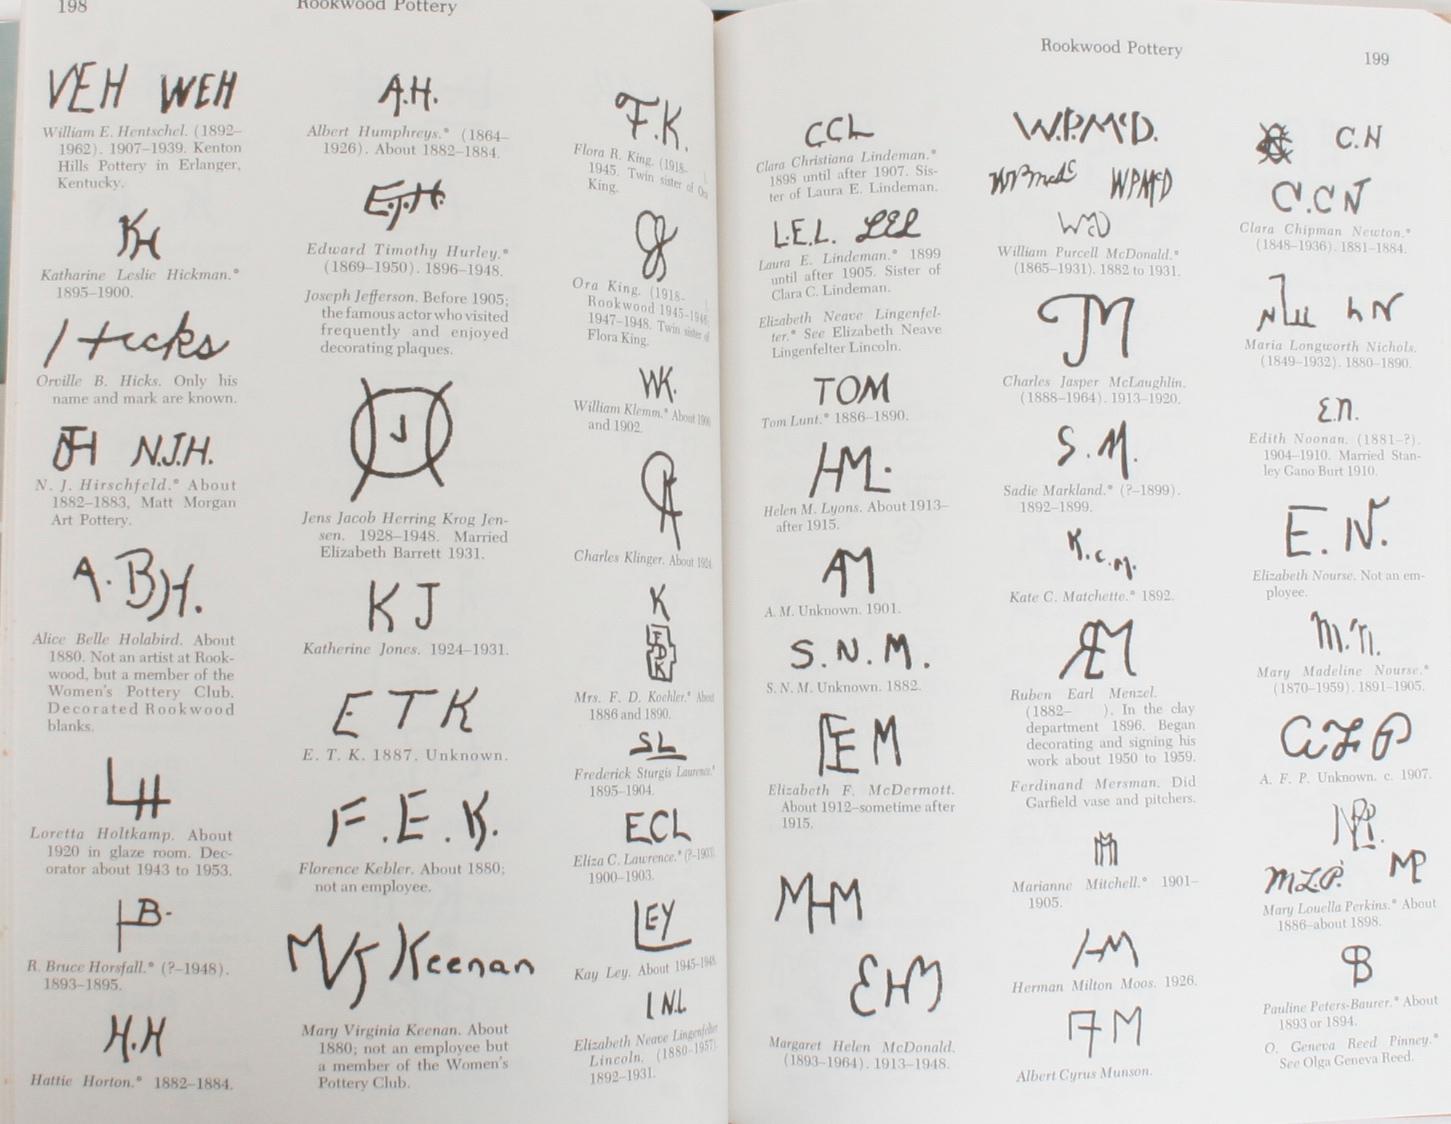 198
Rookwood Pottery
VEH WEH
William E. Hentschel. (1892–
1962). 1907–1939. Kenton
Hills Pottery in Erlanger,
Kentucky.
KH
Katharine Leslie Hickman.*
1895–1900.
Hicks
Orville B. Hicks. Only his
name and mark are known.
JH N.J.H.
N. J. Hirschfeld.* About
1882–1883, Matt Morgan
Art Pottery.
A.BH.
Alice Belle Holabird. About
1880. Not an artist at Rook-
wood, but a member of the
Women's Pottery Club.
Decorated Rookwood
blanks.
LH
Loretta Holtkamp. About
1920 in glaze room. Dec-
orator about 1943 to 1953.
HB-
R. Bruce Horsfall.* (?–1948).
1893–1895.
H.H
Hattie Horton.* 1882–1884.
A.H.
Albert Humphreys.* (1864–
1926). About 1882–1884.
E.T.H.
Edward Timothy Hurley.*
(1869–1950). 1896–1948.
Joseph Jefferson. Before 1905;
the famous actor who visited
frequently and enjoyed
decorating plaques.
J
Jens Jacob Herring Krog Jen-
sen. 1928–1948. Married
Elizabeth Barrett 1931.
KJ
Katherine Jones. 1924–1931.
ETK
E. T. K. 1887. Unknown.
F.E.K.
Florence Kebler. About 1880;
not an employee.
MVJ Keenan
Mary Virginia Keenan. About
1880; not an employee but
a member of the Women's
Pottery Club.
F.K.
Flora R. King. (1918-
1945. Twin sister of Ora
King.
Ora King. (1918-
Rookwood 1945–1946;
1947–1948. Twin sister of
Flora King.
WK.
William Klemm.* About 1900
and 1902.
CK
Charles Klinger. About 1924.
K
FDK
Mrs. F. D. Koehler.* About
1886 and 1890.
SL
Frederick Sturgis Laurence.*
1895–1904.
ECL
Eliza C. Lawrence.* (?–1903).
1900–1903.
LEY
Kay Ley. About 1945–1948.
LNL
Elizabeth Neave Lingenfelter
Lincoln. (1880–1957).
1892–1931.
Rookwood Pottery
199
CCL
Clara Christiana Lindeman.*
1898 until after 1907. Sis-
ter of Laura E. Lindeman.
L.E.L. LEL
Laura E. Lindeman.* 1899
until after 1905. Sister of
Clara C. Lindeman.
Elizabeth Neave Lingenfel-
ter.* See Elizabeth Neave
Lingenfelter Lincoln.
TOM
Tom Lunt.* 1886–1890.
HML.
Helen M. Lyons. About 1913–
after 1915.
AM
A. M. Unknown. 1901.
S.N.M.
S. N. M. Unknown. 1882.
EFM
Elizabeth F. McDermott.
About 1912–sometime after
1915.
MHM
EHM
Margaret Helen McDonald.
(1893–1964). 1913–1948.
W.P.McD.
WPMcD WPMcD
WMD
William Purcell McDonald.*
(1865–1931). 1882 to 1931.
CJM
Charles Jasper McLaughlin.
(1888–1964). 1913–1920.
S.M.
Sadie Markland.* (?–1899).
1892–1899.
K.C.M.
Kate C. Matchette.* 1892.
REM
Ruben Earl Menzel.
(1882– ). In the clay
department 1896. Began
decorating and signing his
work about 1950 to 1959.
Ferdinand Mersman. Did
Garfield vase and pitchers.
MM
Marianne Mitchell.* 1901–
1905.
HM
Herman Milton Moos. 1926.
AM
Albert Cyrus Munson.
C.N
C.C N
Clara Chipman Newton.*
(1848–1936). 1881–1884.
Maria Longworth Nichols.
(1849–1932). 1880–1890.
E.N.
Edith Noonan. (1881–?).
1904–1910. Married Stan-
ley Gano Burt 1910.
E.N.
Elizabeth Nourse. Not an em-
ployee.
M.N.
Mary Madeline Nourse.*
(1870–1959). 1891–1905.
AFP
A. F. P. Unknown. c. 1907.
MLP.
MP
Mary Louella Perkins.* About
1886–about 1898.
PB
Pauline Peters-Baurer.* About
1893 or 1894.
O. Geneva Reed Pinney.*
See Olga Geneva Reed.